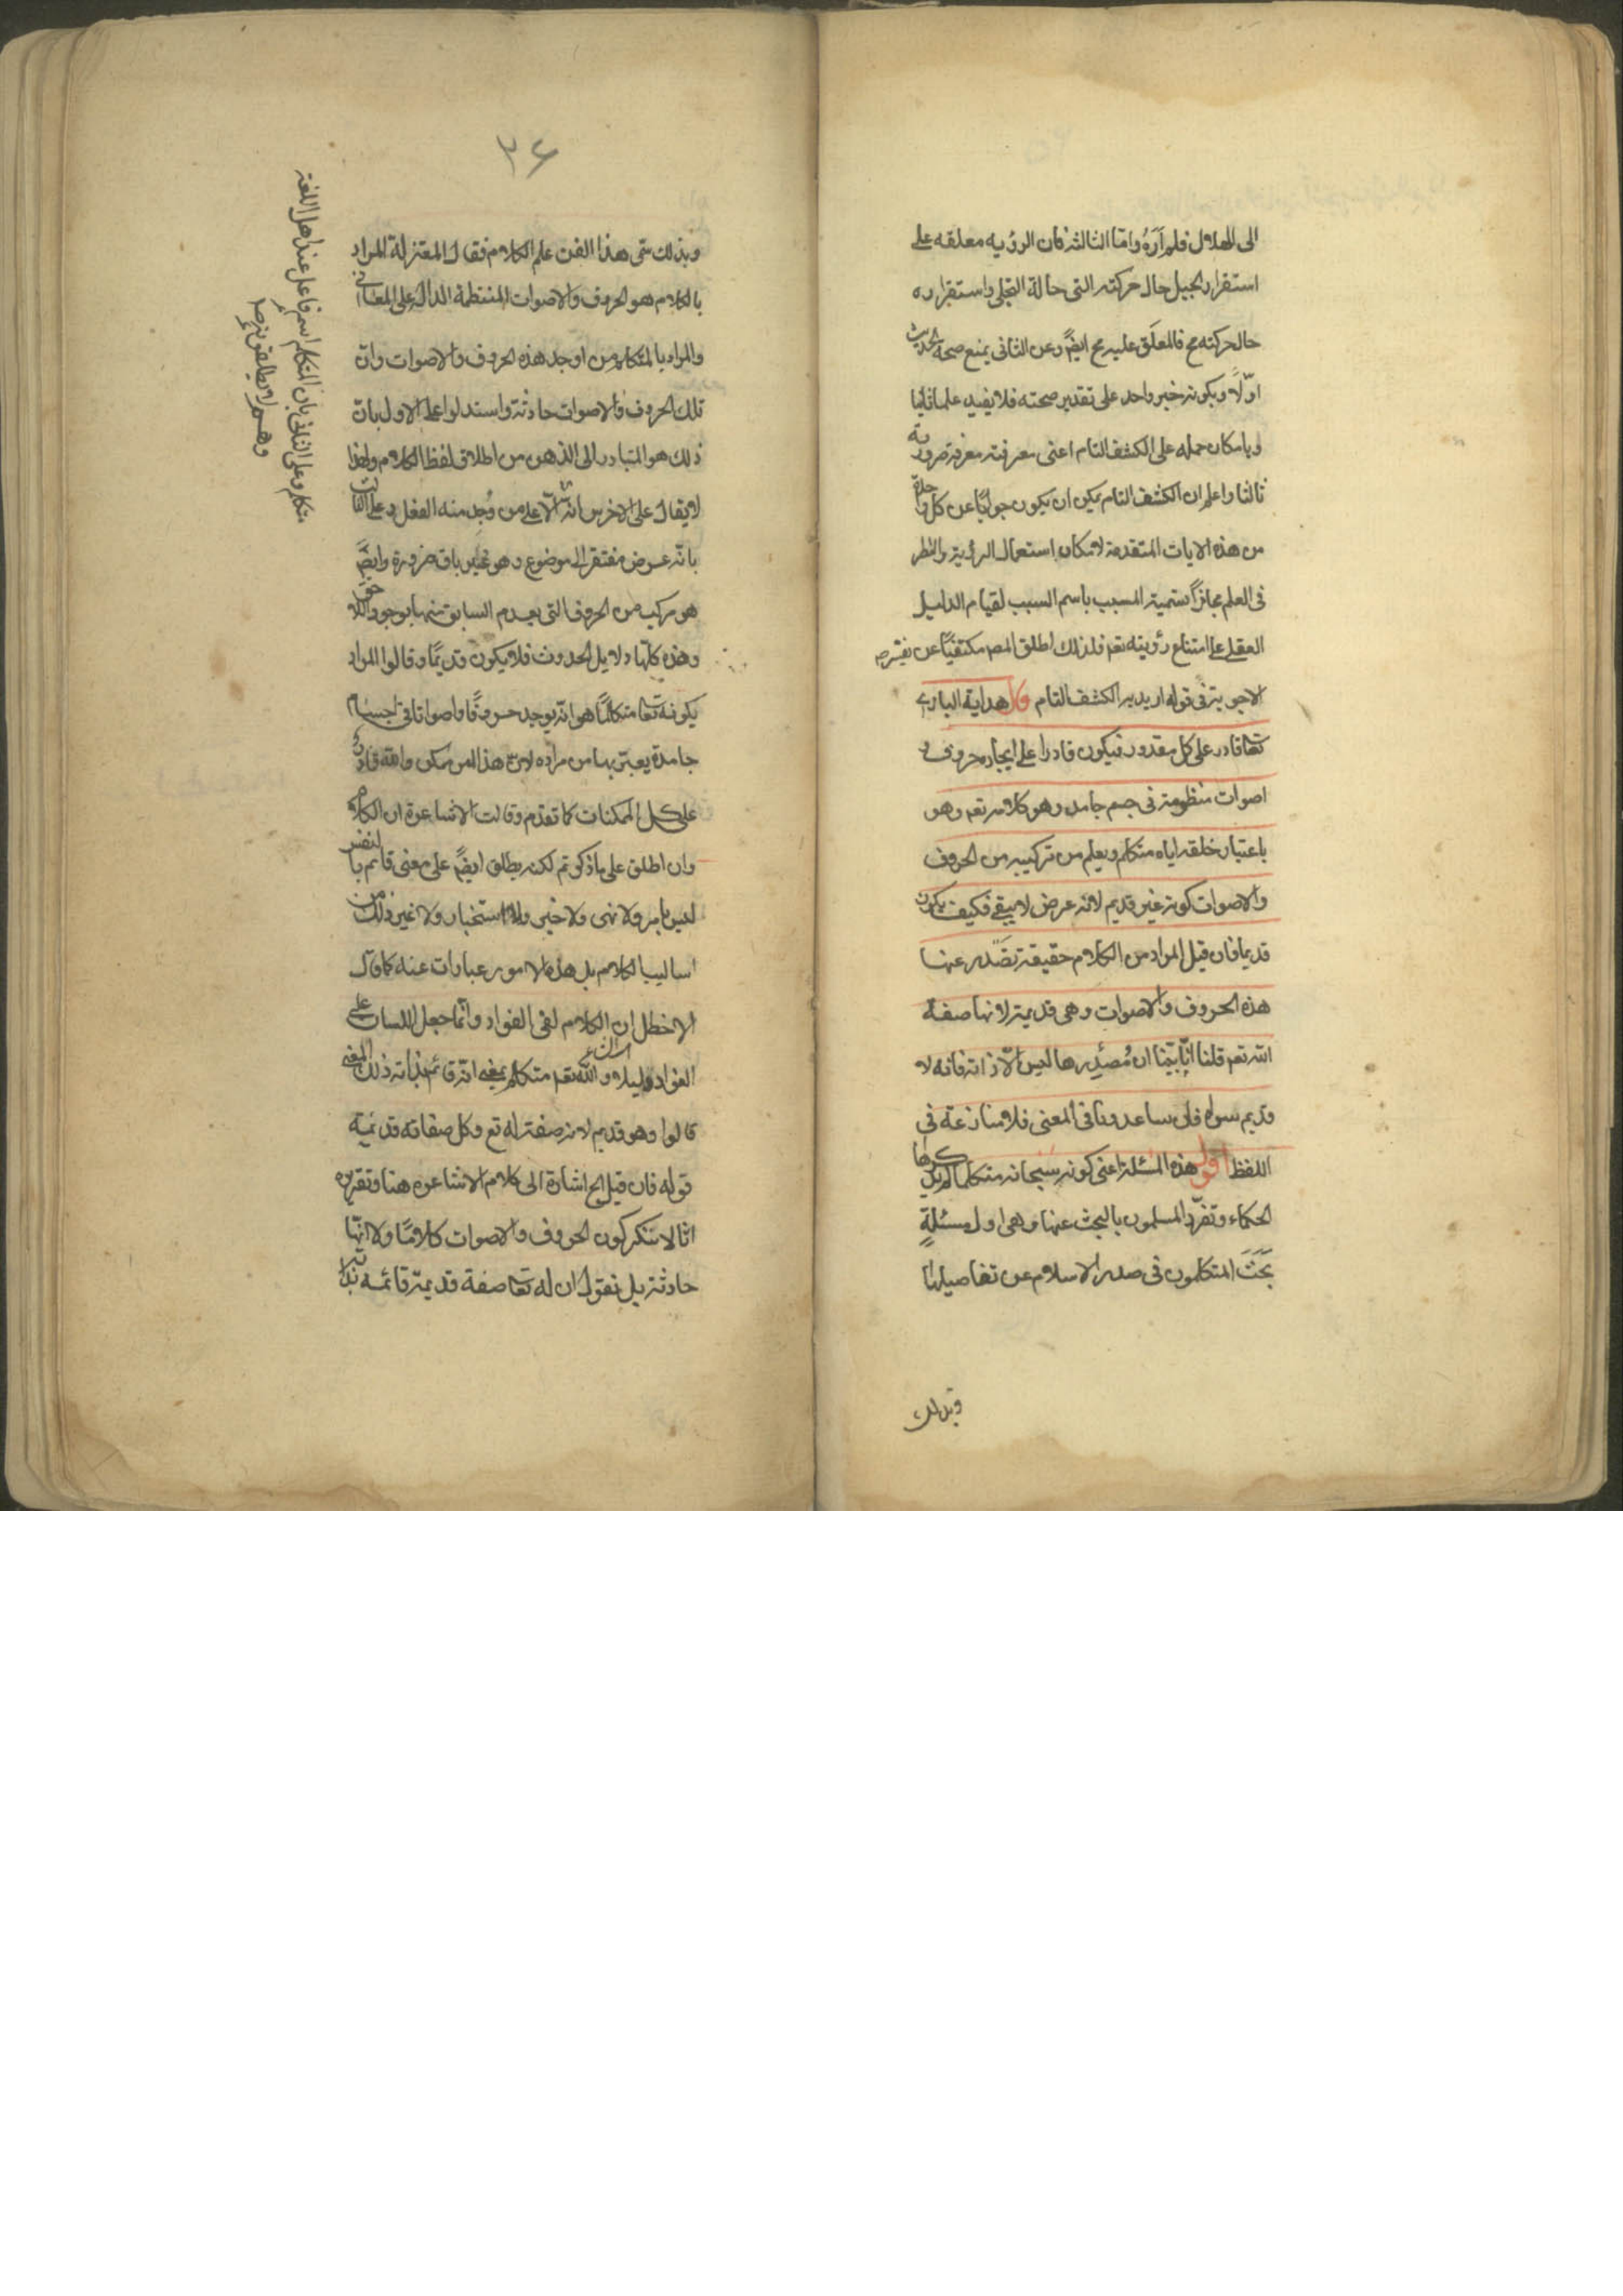 الى الهلال فلم أَرَهُ وامّا الثالثة فان الرؤيه معلقه على
استقرار الجبل حال حركته التى حالة التجلى واستقراره
حال حركته مح فالمعلّق عليه مح ايضً وعن الثانى بمنع صحة الحديث
اوّلاً وبكونه خبر واحد على تقدير صحته فلا يفيد علما ثانيا
وبامكان حمله على الكشف التام اعنى معرفته معرفة ضرورية
ثالثا واعلم ان الكشف التام يمكن ان يكون جوابًا عن كل واحدة
من هذه الايات المتقدمة لامكان استعمال الرؤية والنظر
فى العلم مجازاً تسمية المسبب باسم السبب لقيام الدليل
العقلى على امتناع رؤيته تعم فلذلك اطلق المص مكتفيًا عن
الاجوبة فى قوله اريد به الكشف التام قال هداية البارئ
تعا قادر على كل مقدور فيكون قادرا على ايجاد حروف و
اصوات منظومة فى جسم جامد وهو كلامه تعم وهو
باعتبار خلقه اياه متكلم ويعلم من تركيبه من الحروف
والاصوات كونه غير قديم لانه عرض لا يبقى فكيف يكون
قديما فان قيل المراد من الكلام حقيقة تصْدر عنها
هذه الحروف والاصوات وهى قديمة لانها صفة
الله تعم قلنا انّا بيّنا ان مُصدِرها ليس الّا ذاته فانه لا
قديم سواه فان ساعدونا فى المعنى فلا منازعة فى
اللفظ اقول هذه المسئلة اعنى كونه سبحانه متكلما لم يذكرها
الحكماء وتفرّد المسلمون بالبحث عنها وهى اول مسئلةٍ
بَحَثَ المتكلمون فى صدر الاسلام عن تفاصيلها
وبذلك
٣٦
وبذلك سمّى هذا الفن علم الكلام فقال المعتزلة المراد
بالكلام هو الحروف والاصوات المنتظمة الدالة على المعانى
والمراد بالمتكلم من اوجد هذه الحروف والاصوات وان
تلك الحروف والاصوات حادثة واستدلوا على الاول بان
ذلك هو المتبادر الى الذهن من اطلاق لفظ الكلام ولهذا
لا يقال على الاخرس الّا على من وُجد منه الفعل وعلى الثالث
بانّه عرض مفتقر الى موضوع وهو غير باق ضرورة وايضً
هو مركب من الحروف التى يعدم السابق منها بوجود اللاحق
وهذه كلّها دلايل الحدوث فلا يكون قديمًا وقالوا المراد
بكونه تعا متكلمًا هو انّه يوجد حروفًا واصواتا فى اجسام
جامدة يعبّر بها من مراده لان هذا امر ممكن والله قادر
على كل الممكنات كما تقدم وقالت الاشاعرة ان الكلام
وان اطلق على ما ذكرتم لكنه يطلق ايضً على معنى قائم بالنفس
ليس بامر ولا نهى ولا خبر ولا استخبار ولا غير ذلك من
اساليب الكلام بل هذه الامور عبارات عنه كما قال
الاخطل ان الكلام لفى الفواد وانّما جعل اللسان على
الفواد دليلا والله تعم متكلم بمعنى انّه قائم بذاته ذلك المعنى
قالوا وهو قديم لانه صفة له تع وكل صفاته قديمة
قوله فان قيل الخ اشارة الى كلام الاشاعره هنا وتقريره
انّا لا ننكر كون الحروف والاصوات كلامًا ولا انّها
حادثة بل نقول ان له تعا صفة قديمة قائمة بذاته
متكلم وعلى الثانى بان المتكلم اسم فاعل عند اهل اللغة
وهم لا يطلقونه